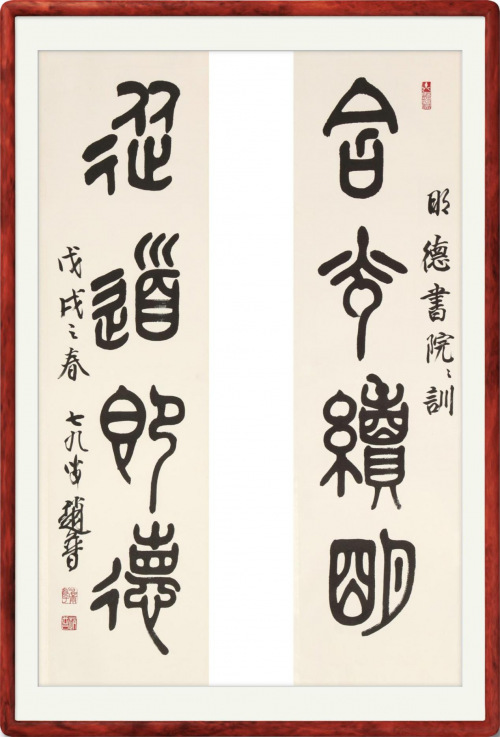 明德書院之訓
含光續明
從道即德
戊戌之春 七九叟趙